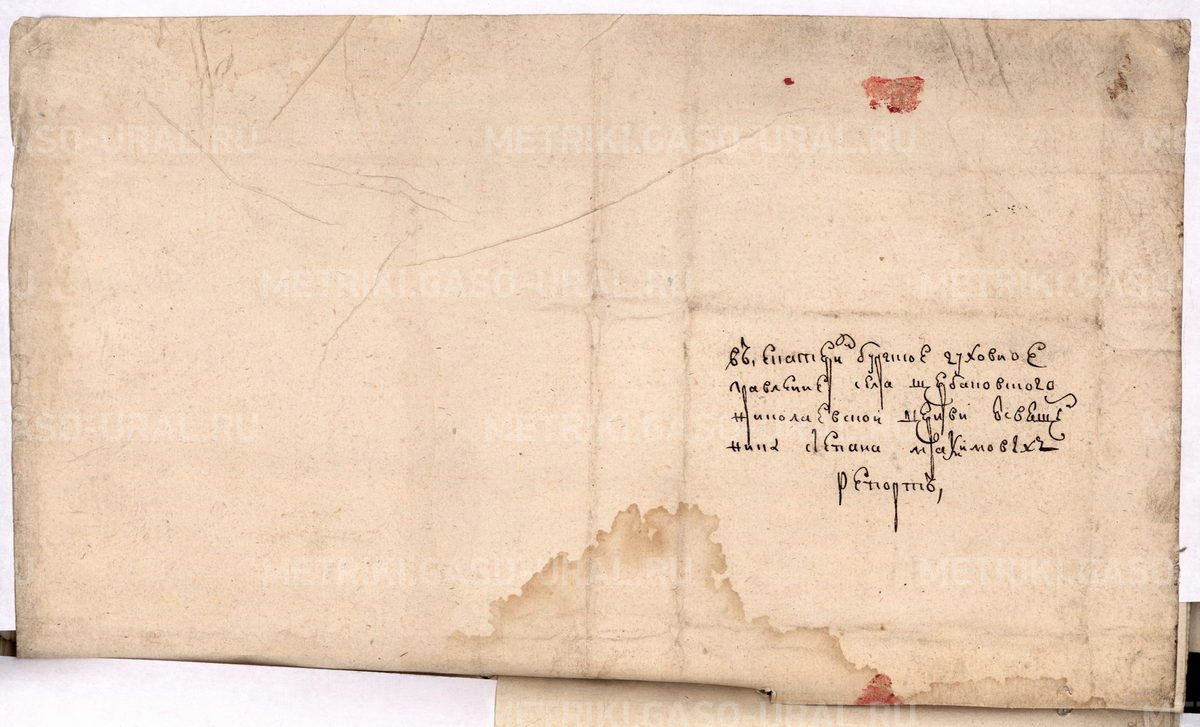 METRIKI.GASO-URAL.RU
въ екатеринбургское духовное
правление села щербаковского
николаевской церкви священ
ника степана максимовых
репортъ,